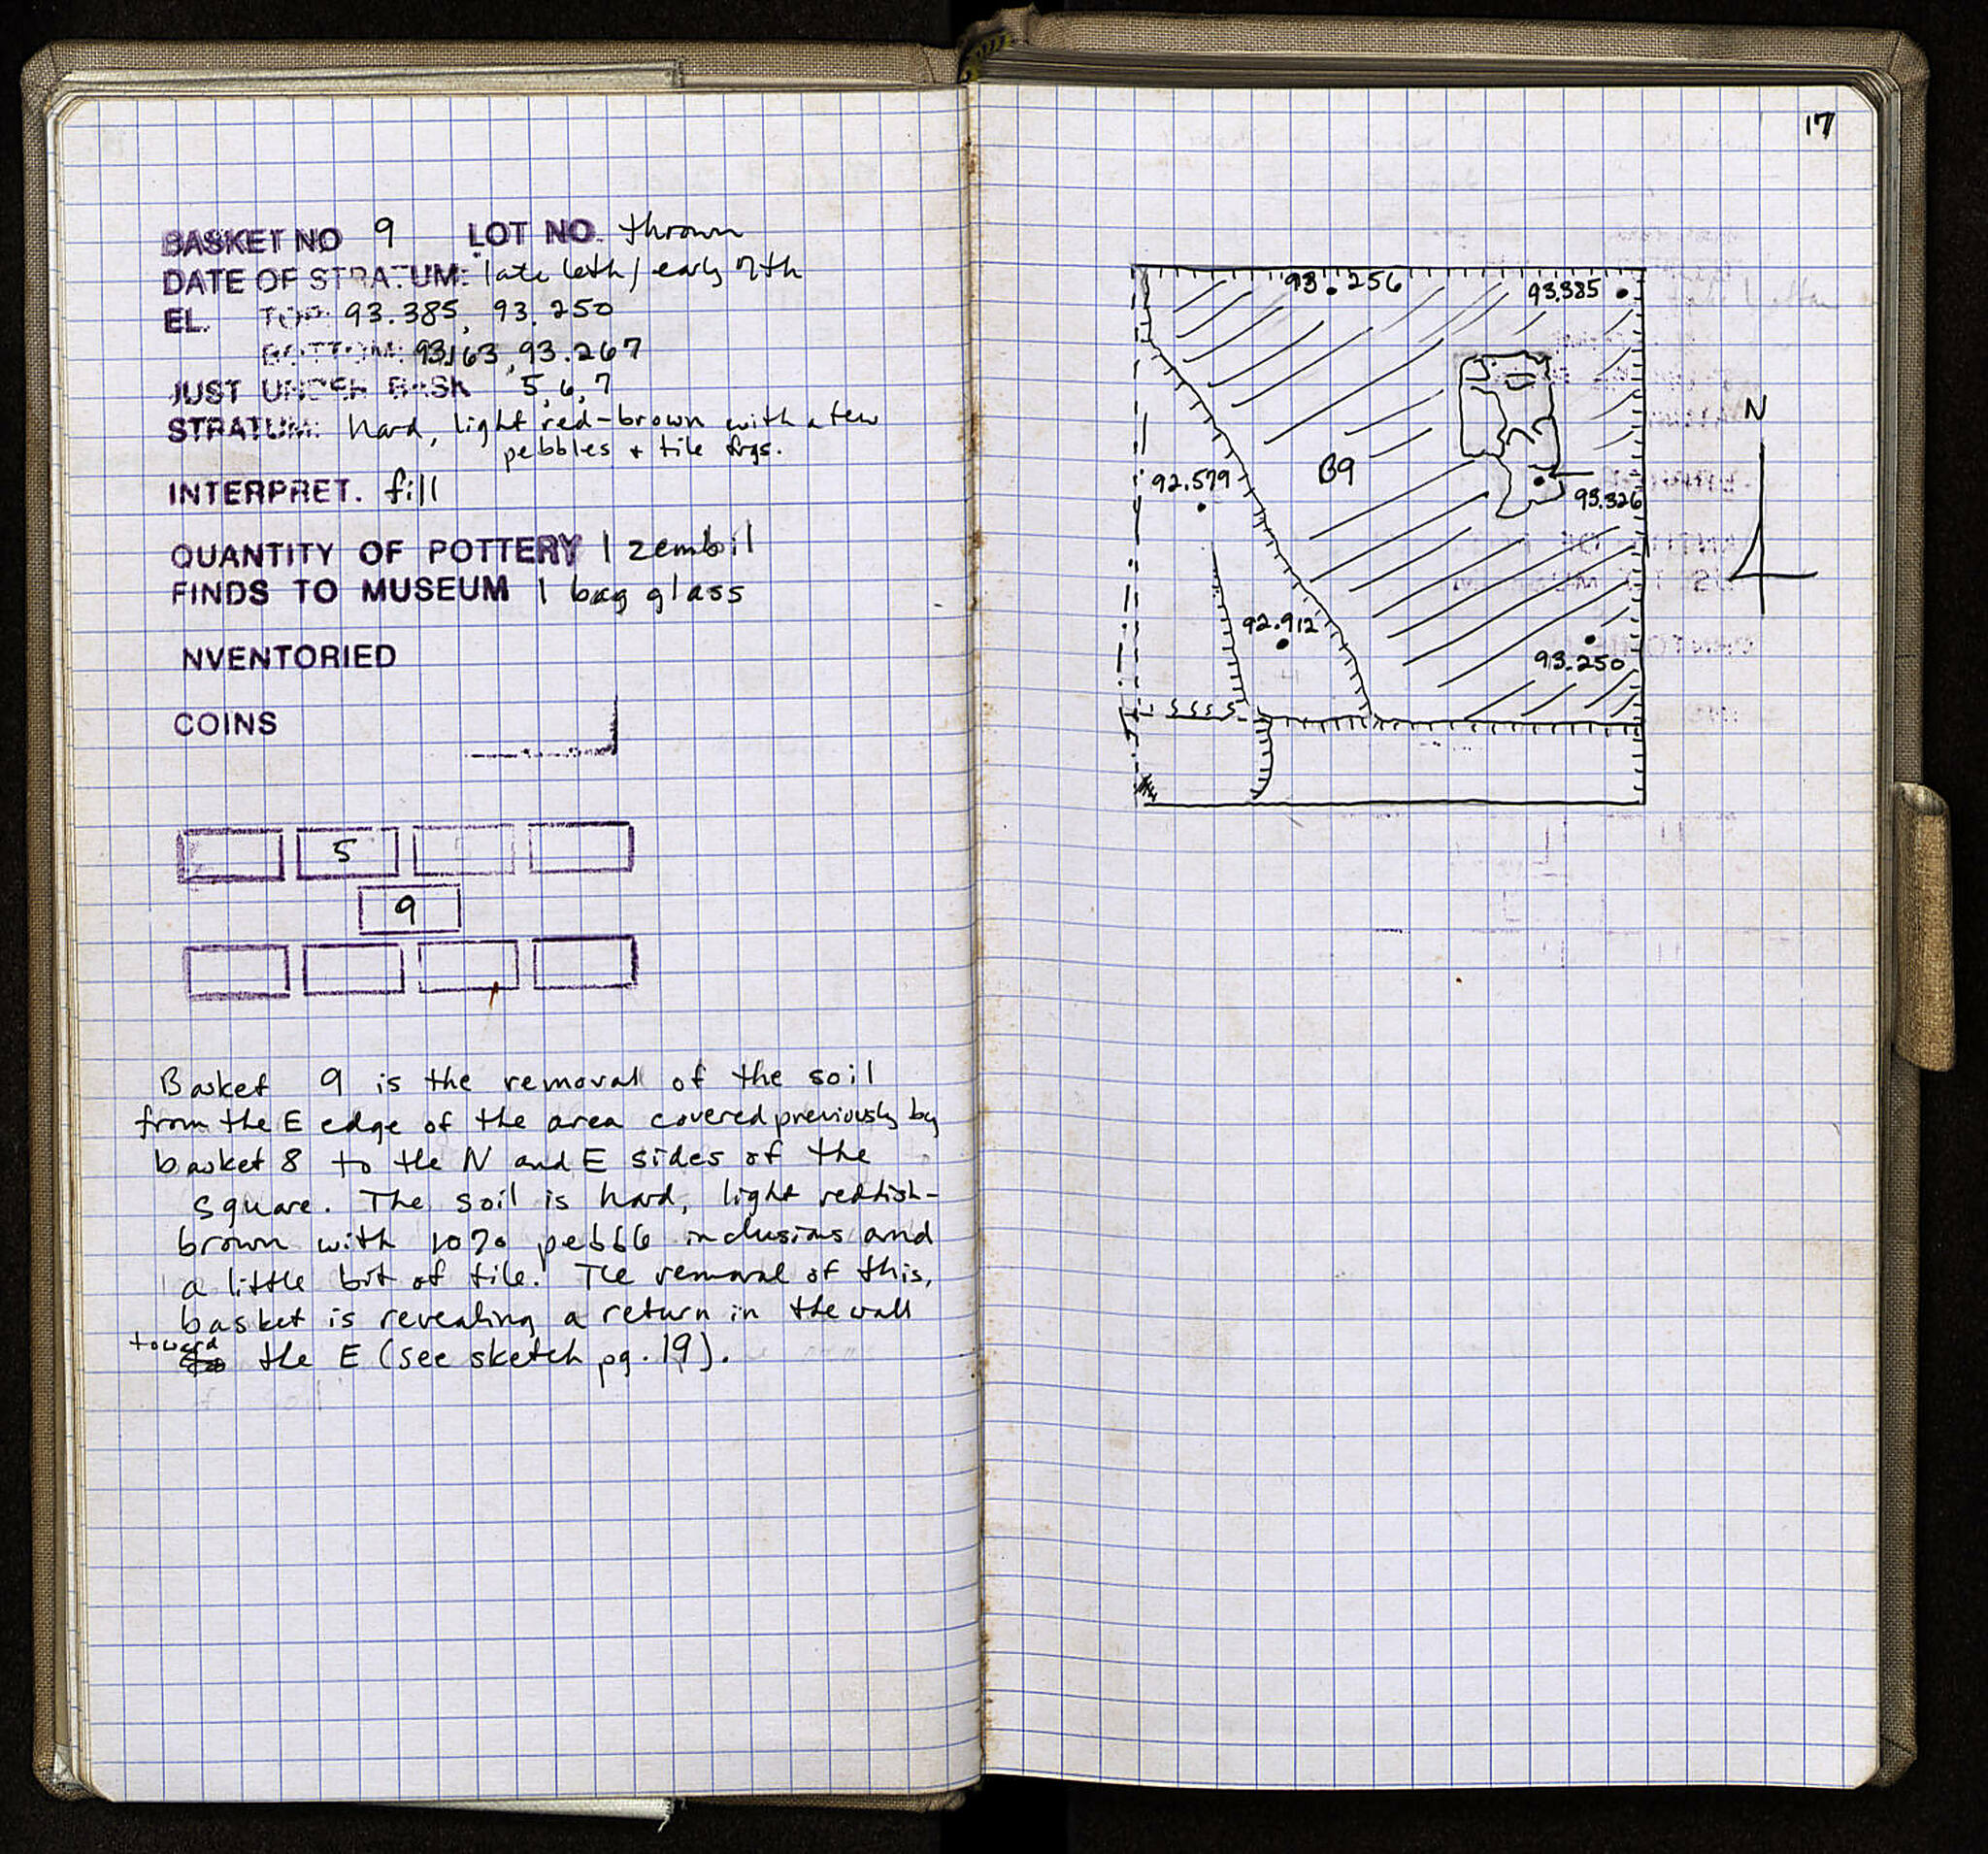 BASKET NO 9 LOT NO. thrown
DATE OF STRATUM: late 6th / early 7th
EL. TOP: 93.385, 93.250
BOTTOM: 93.163, 93.267
JUST UNDER BASK 5, 6, 7
STRATUM: hard, light red-brown with a few
pebbles + tile frgs.
INTERPRET. fill
QUANTITY OF POTTERY 1 zembil
FINDS TO MUSEUM 1 bag glass
NVENTORIED
COINS
5
9
Basket 9 is the removal of the soil
from the E edge of the area covered previously by
basket 8 to the N and E sides of the
square. The soil is hard, light reddish-
brown with 10% pebble inclusions and
a little bit of tile. The removal of this
basket is revealing a return in the wall
toward the E (see sketch pg. 19).
17
93.256 93.385
N
B9
92.579
93.326
92.912
93.250